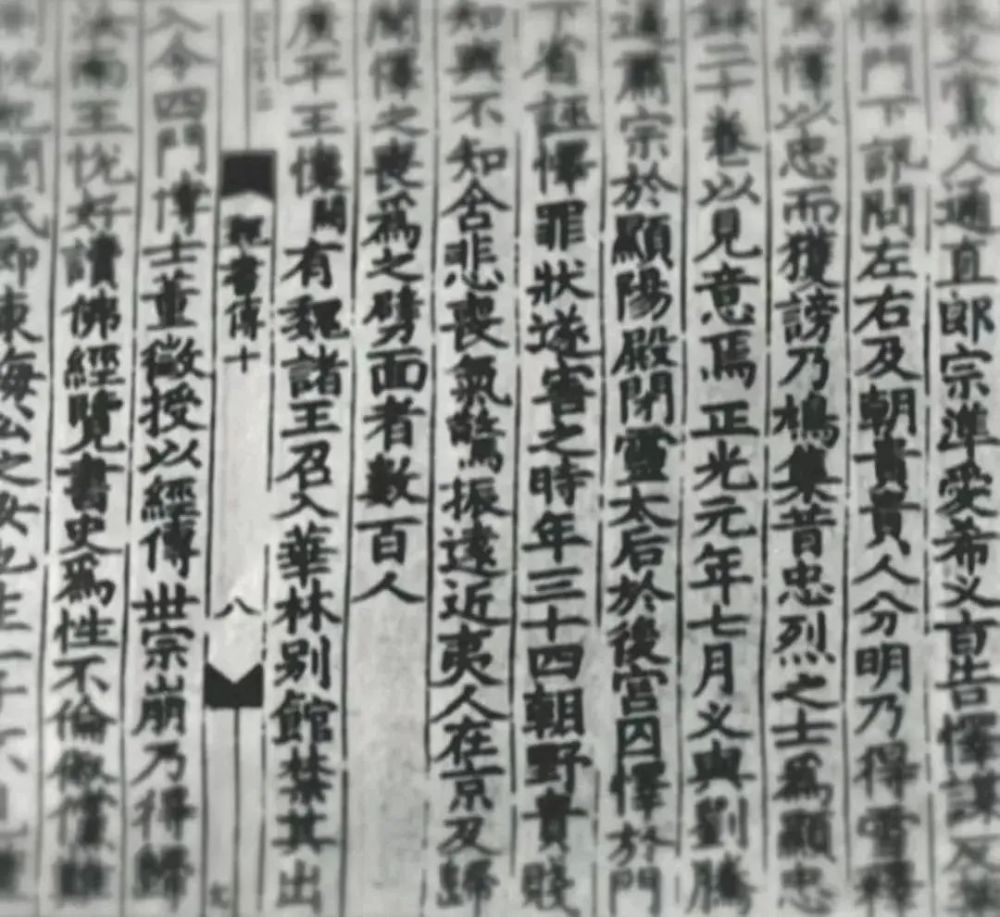 义黨人通直郎宗準愛希义旨告懌謀反禁
懌門下訊問左右及朝貴貴人分明乃得雪釋
焉懌以忠而獲謗乃鳩集昔忠烈之士爲顯忠
錄二十卷以見意焉正光元年七月义與劉騰
逼肅宗於顯陽殿閉靈太后於後宮囚懌於門
下省誣懌罪狀遂害之時年三十四朝野貴賤
知與不知含悲喪氣驚振遠近夷人在京及歸
聞懌之喪爲之劈面者數百人
廣平王懷闕有魏諸王召入華林别館禁其出
魏書傳十 八
入令四門博士董徵授以經傳世宗崩乃得歸
汝南王悅好讀佛經覽書史爲性不倫俶儻難
悅妃閭氏即東海公之女也生一子不見禮